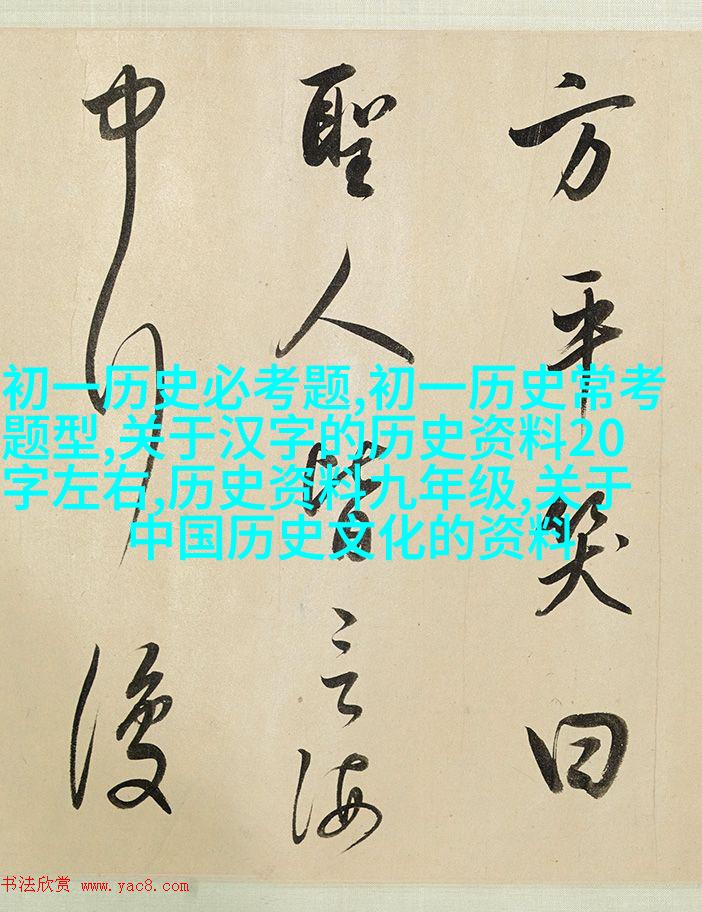 方平笑曰
聖人皆言海
中行復
初一历史必考题,初一历史常考
题型,关于汉字的历史资料20
字左右,历史资料九年级,关于
中国历史文化的资料
书法欣赏 www.yac8.com